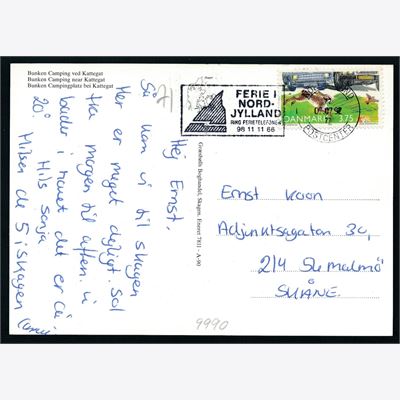 Bunken Camping ved Kattegat
Bunken Camping near Kattegat
Bunken Campingplatz bei Kattegat
Hej Ernst,
Så kom vi til Skagen
Her er meget dejligt. Sol
fra morgen til aften. Vi
bader i havet det er ca
20°. Hils Sonja
Hilsen de 5 i Skagen
Grønholls Boghandel, Skagen. Eneret 7811 - A-90
FERIE I
NORD-
JYLLAND
RING FERIETELEFONEN
98 11 11 66
POSTCENTER
DANMARK 3.75
Ernst Koon
Adjunktsgatan 3c,
214 56 Malmö
SKÅNE.
9990